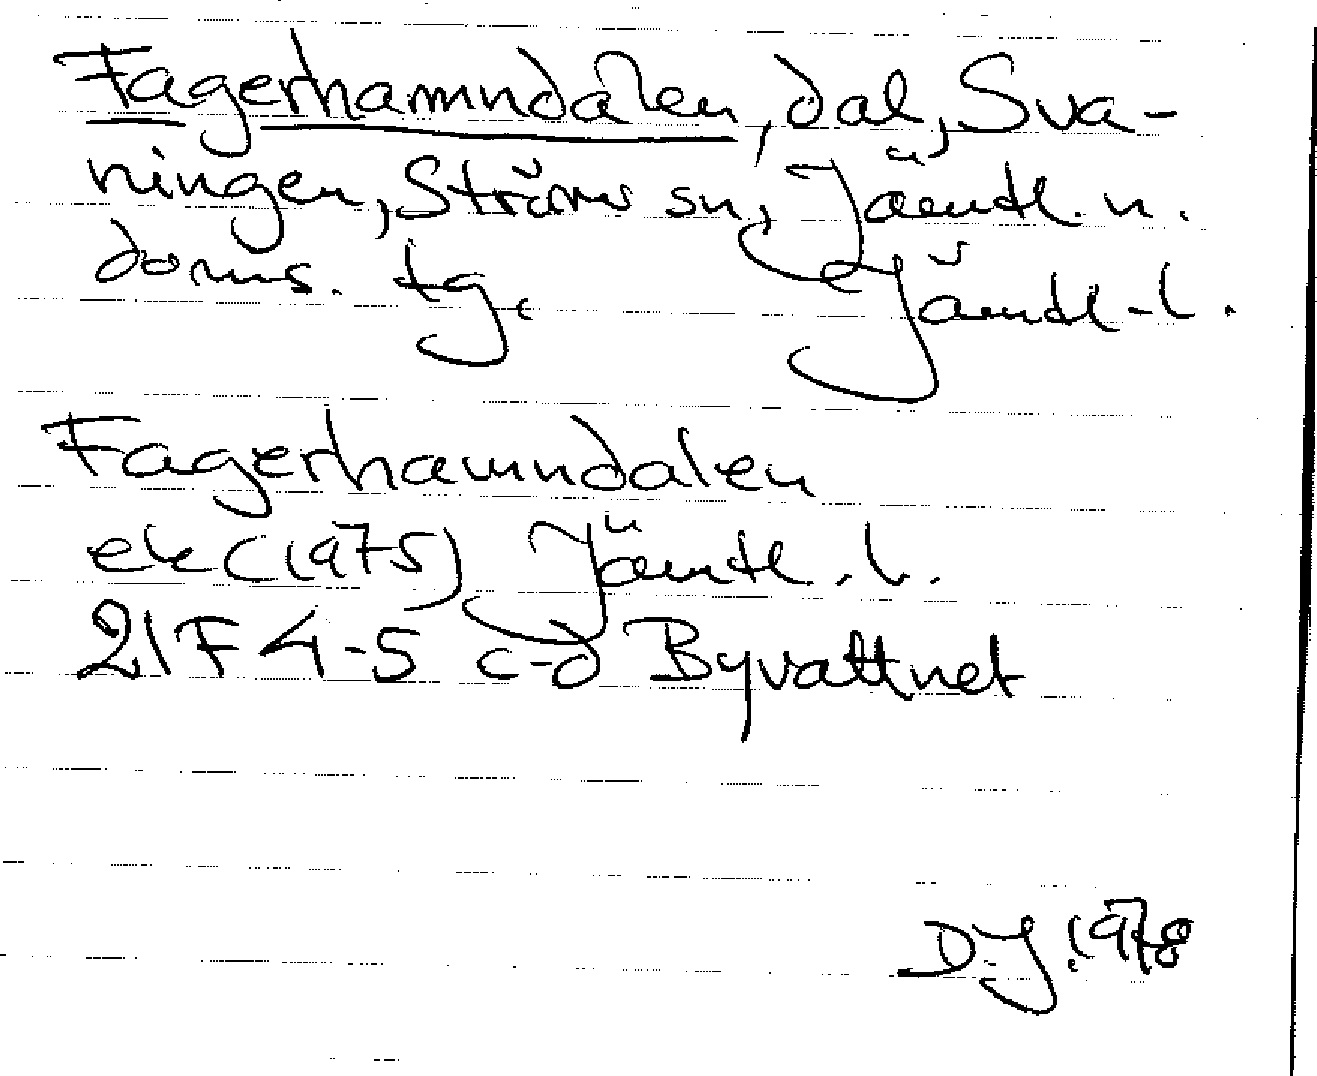 Fagerhamndalen, dal, Sva-
ningen, Ströms sn, Jämtl. n.
doms. tg, Jämtl. l.
Fagerhamndalen
ek (1975) Jämtl. l.
21F 4-5 c-d Byvattnet
DJ 1978